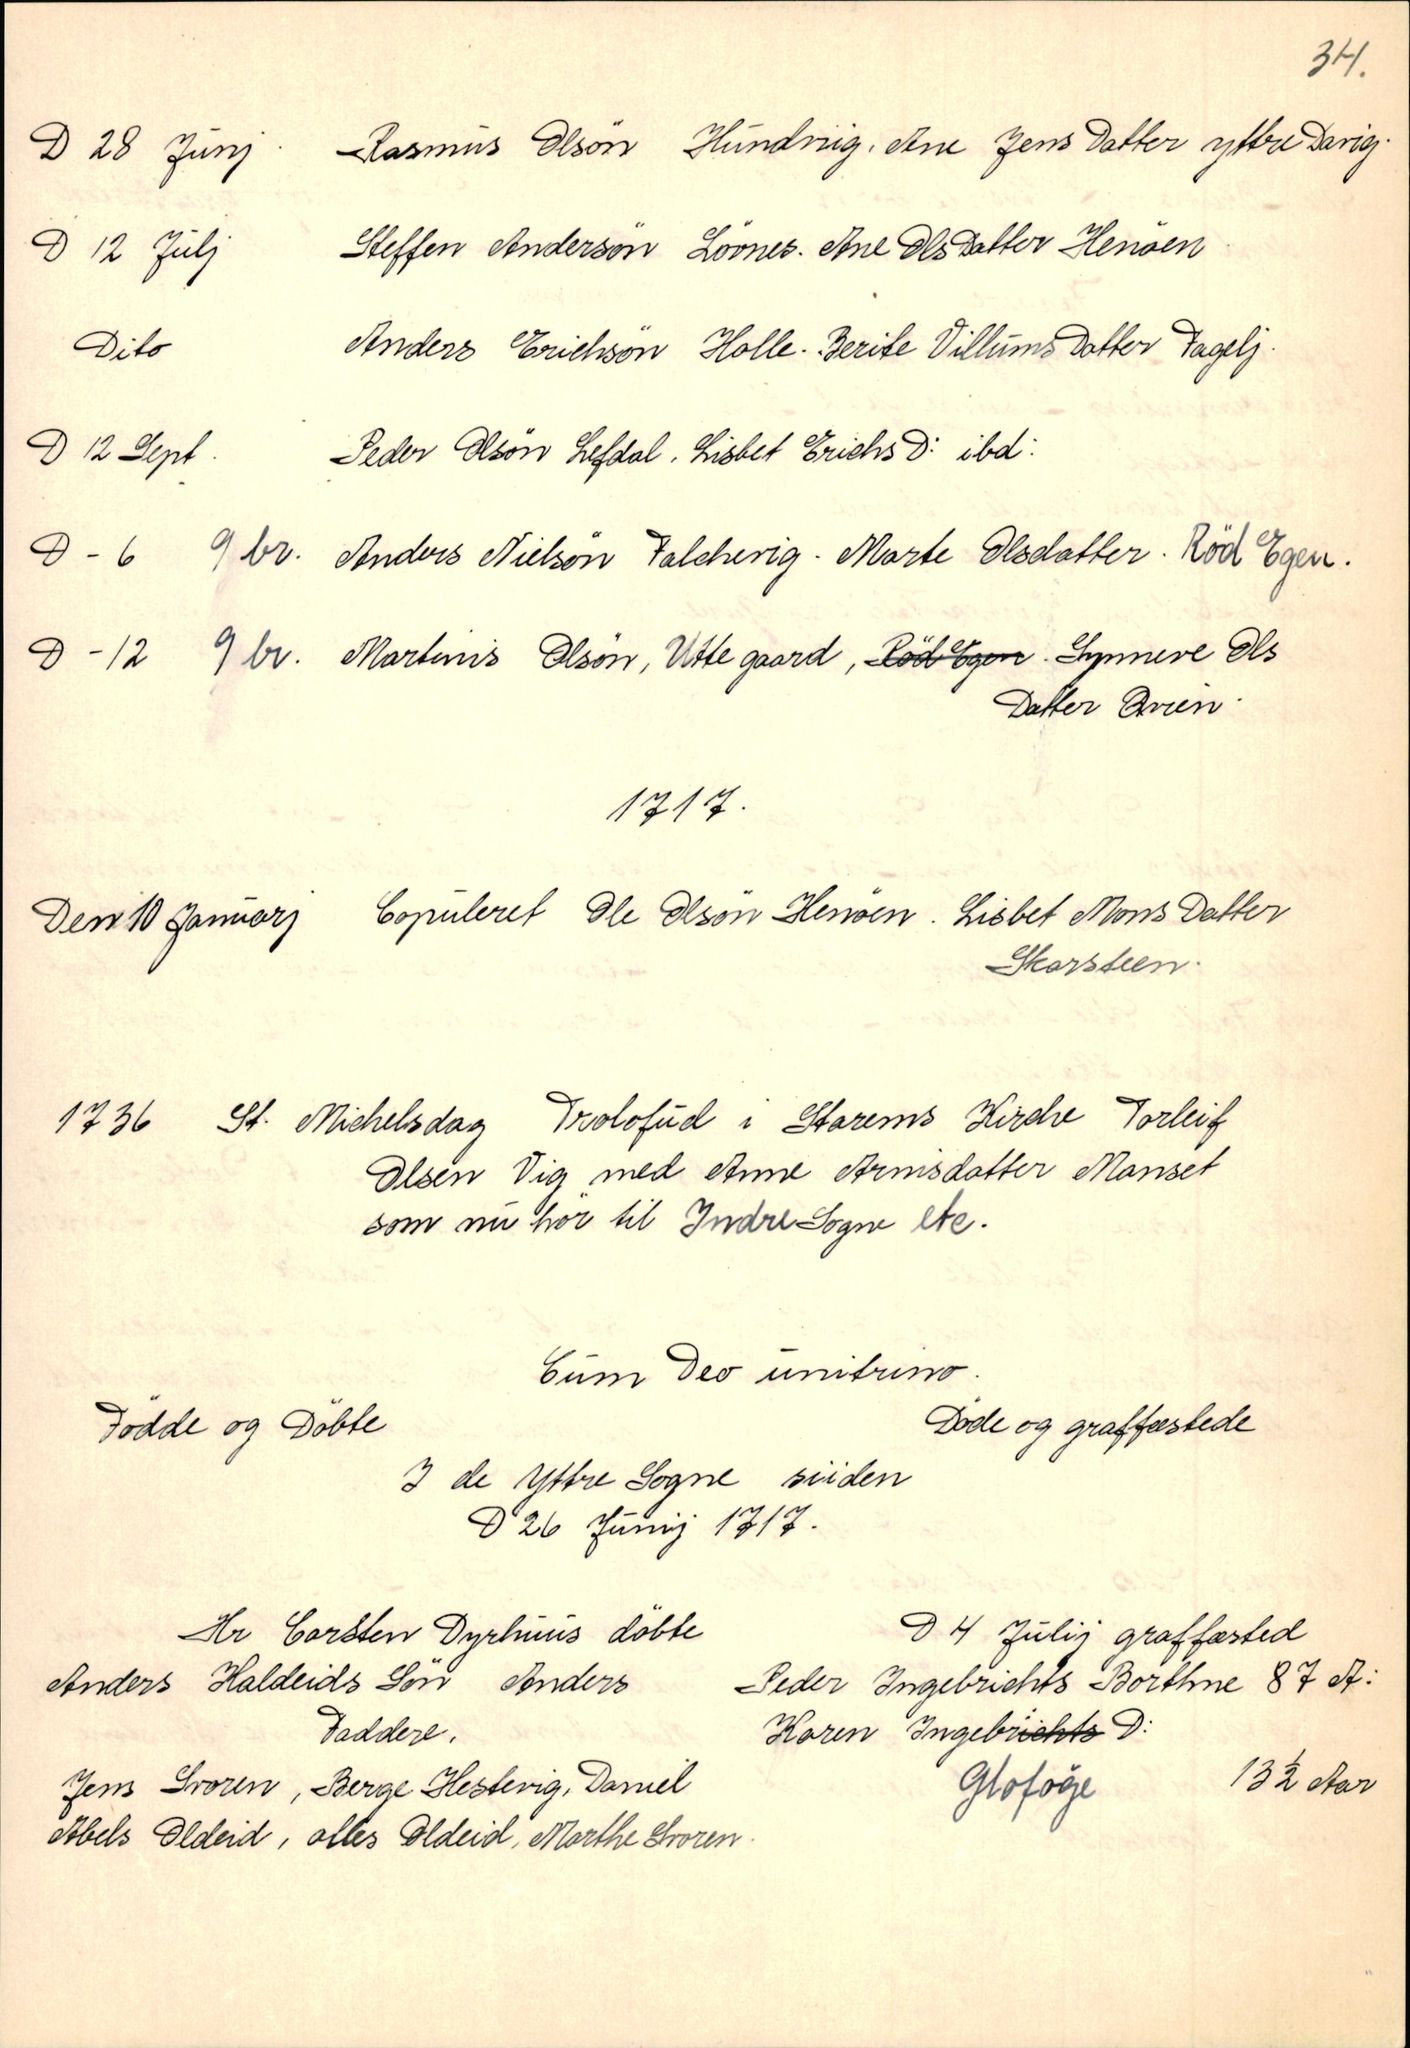 34.
D 28 Junj Rasmus Olsön Hundviig. Ane Jens Datter yttre Davig.
D 12 Julj Steffen Andersön Lövnes. Ane Ols Datter Henöen
Dito Anders Erichsön Holle. Berite Villums Datter Fagelj.
D 12 Sept. Peder Olsön Lefdal. Lisbet Erichs D: ibd:
D - 6 9br. Anders Nielsön Falchevig. Marte Olsdatter. Röd Egen.
D - 12 9br. Martinis Olsön, Utte gaard, Röd Egen. Synneve Ols
Datter Qvien.
1717.
Den 10 Januarj Copuleret Ole Olsön Henöen. Lisbet Mons Datter
Skarsteen.
1736 St. Michelsdag Trolofud i Starems Kirche Torleif
Olsen Vig med Anne Arnisdatter Manset
som nu hör til Indre Sogne etc.
Cum Deo unitrino.
Födde og Döbte Döde og graffæstede
I de Yttre Sogne siiden
D 26 Junij 1717.
Hr Carsten Dyrhuus döbte
Anders Haldeids Sön Anders
Faddere.
Jens Svoren, Berge Hestevig, Daniel
Abels Oldeid, olles Oldeid, Marthe Svoren.
D 4 Julij graffæsted
Peder Ingebrichts Borthne 87 A:
Karen Ingebrichts D:
Gloföge 13½ Aar